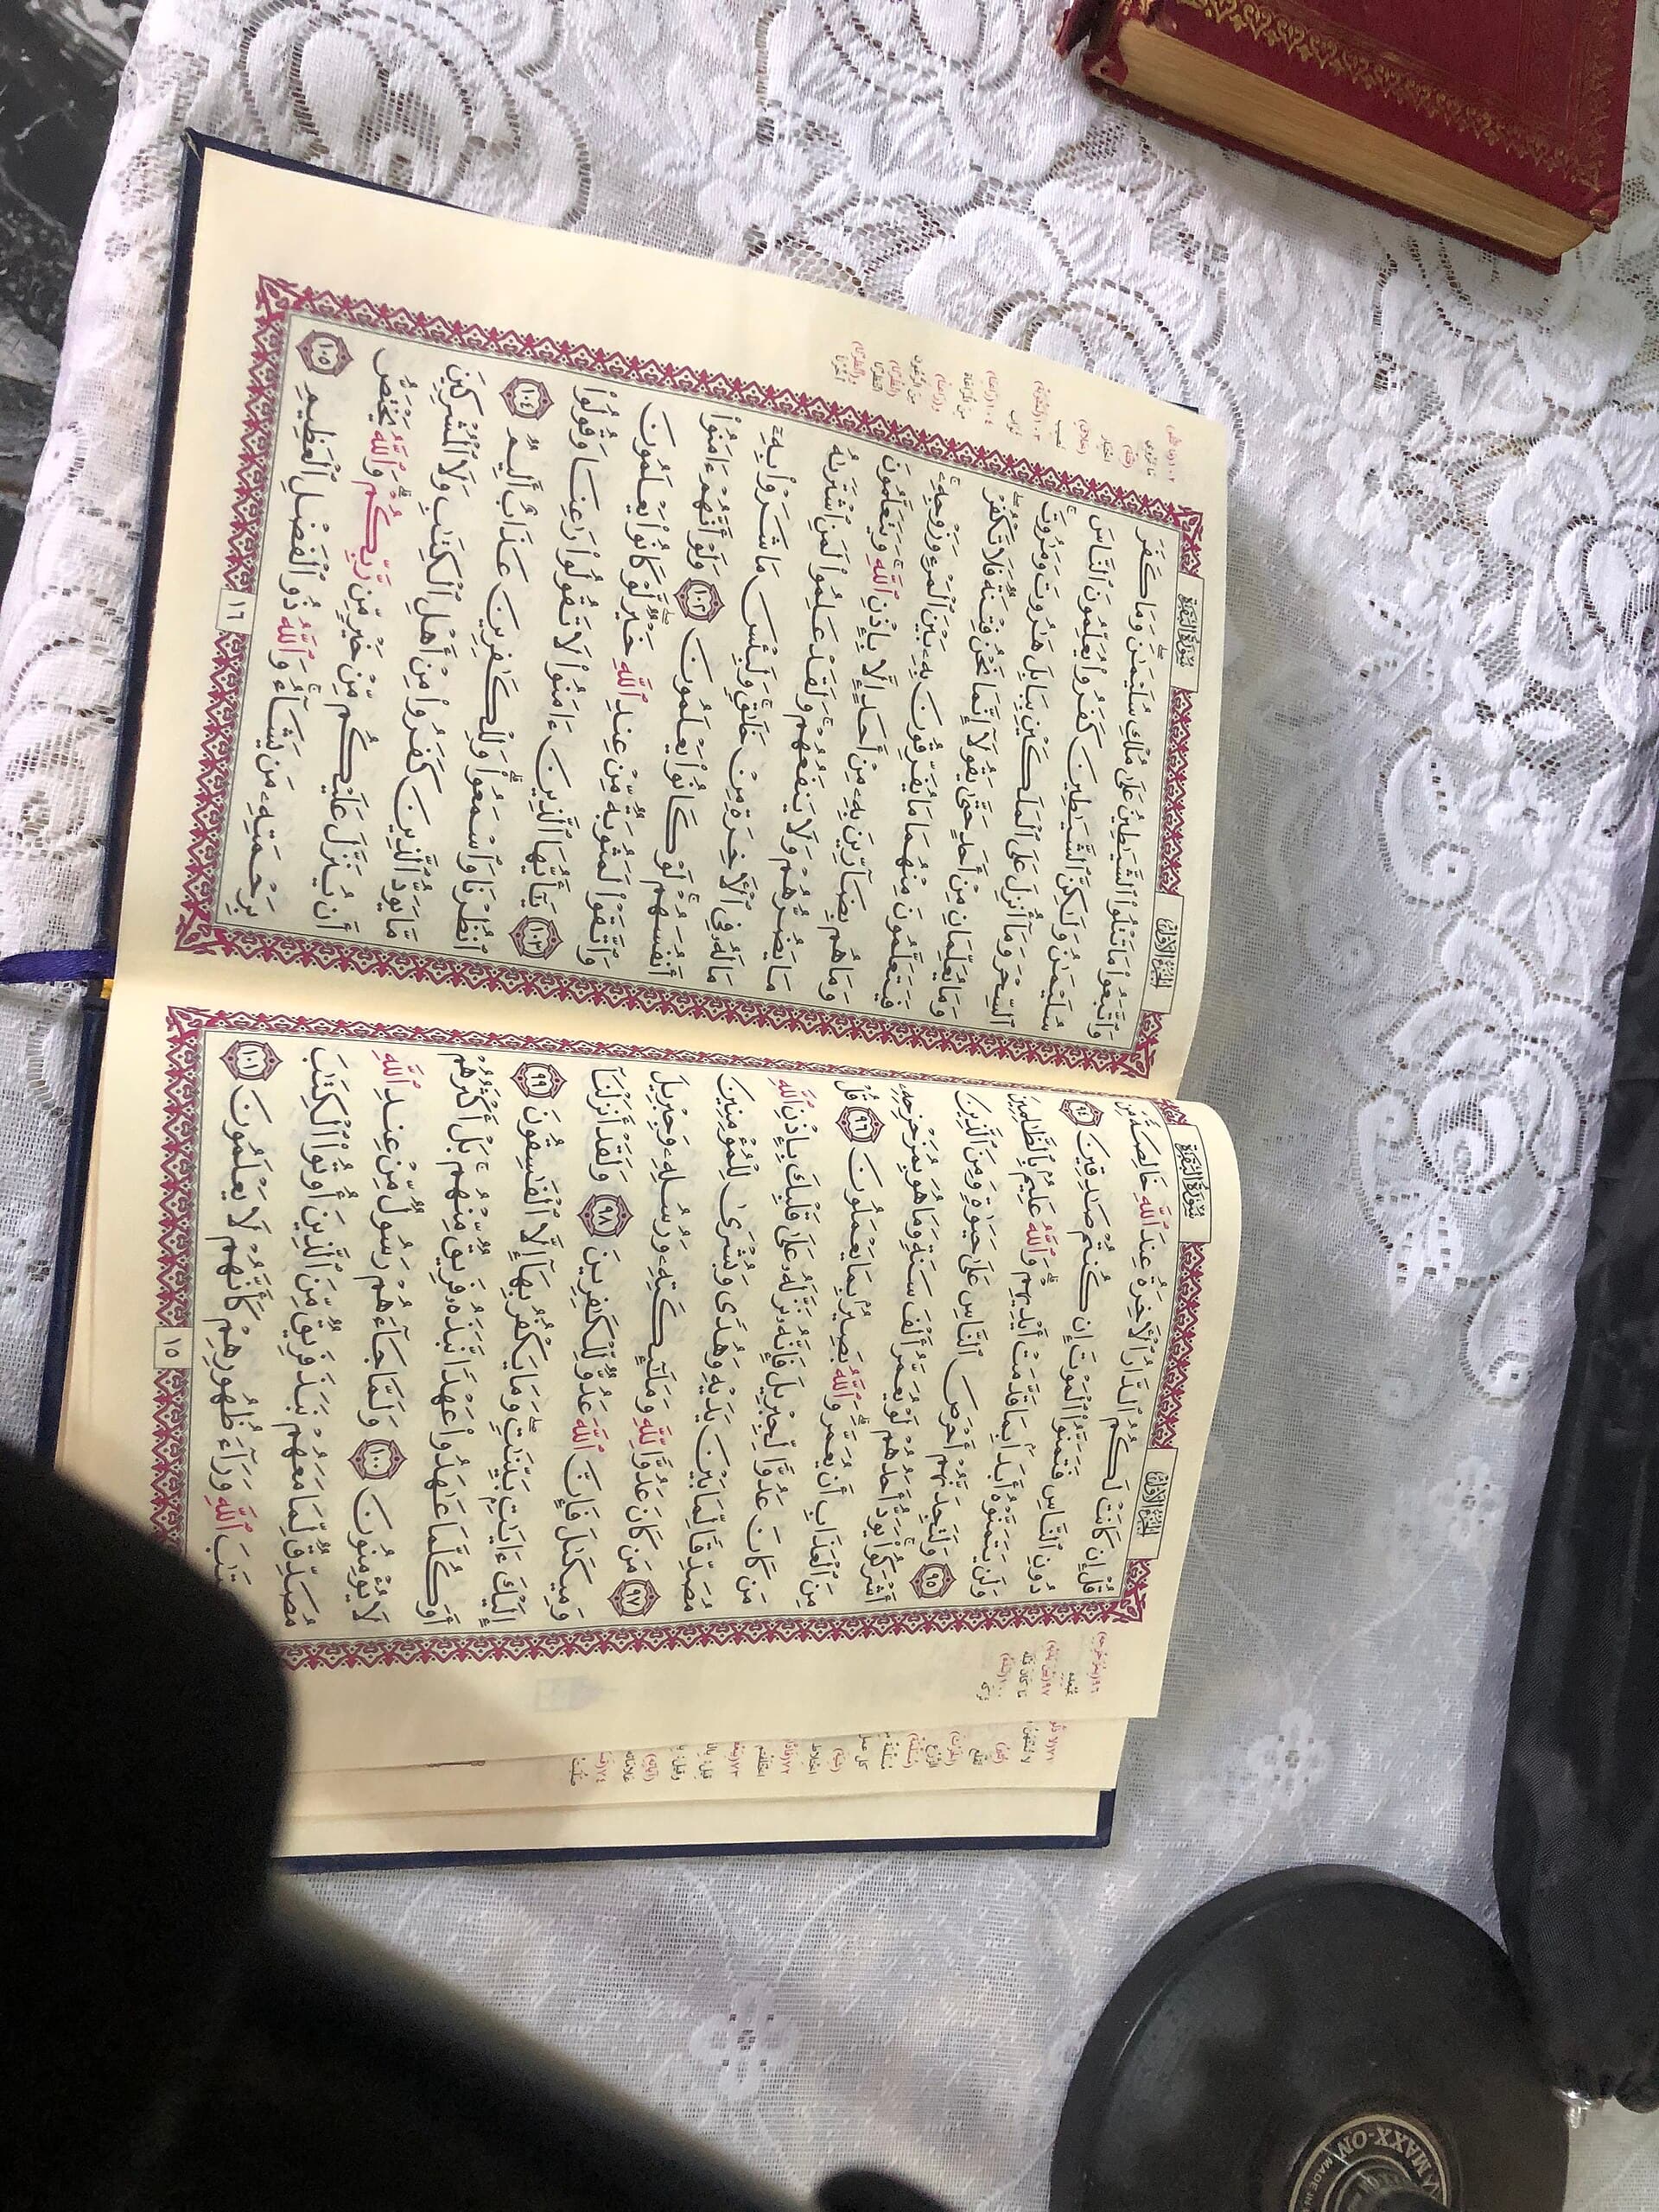 سُورَةُ البَقَرَةِ
الجُزْءُ الأَوَّلُ
قُلْ إِن كَانَتْ لَكُمُ ٱلدَّارُ ٱلْأَخِرَةُ عِندَ ٱللَّهِ خَالِصَةً مِّن
دُونِ ٱلنَّاسِ فَتَمَنَّوُا۟ ٱلْمَوْتَ إِن كُنتُمْ صَـٰدِقِينَ ٩٤
وَلَن يَتَمَنَّوْهُ أَبَدًۢا بِمَا قَدَّمَتْ أَيْدِيهِمْ ۗ وَٱللَّهُ عَلِيمٌۢ بِٱلظَّـٰلِمِينَ
٩٥ وَلَتَجِدَنَّهُمْ أَحْرَصَ ٱلنَّاسِ عَلَىٰ حَيَوٰةٍ وَمِنَ ٱلَّذِينَ
أَشْرَكُوا۟ ۚ يَوَدُّ أَحَدُهُمْ لَوْ يُعَمَّرُ أَلْفَ سَنَةٍ وَمَا هُوَ بِمُزَحْزِحِهِۦ
مِنَ ٱلْعَذَابِ أَن يُعَمَّرَ ۗ وَٱللَّهُ بَصِيرٌۢ بِمَا يَعْمَلُونَ ٩٦ قُلْ
مَن كَانَ عَدُوًّا لِّجِبْرِيلَ فَإِنَّهُۥ نَزَّلَهُۥ عَلَىٰ قَلْبِكَ بِإِذْنِ ٱللَّهِ
مُصَدِّقًا لِّمَا بَيْنَ يَدَيْهِ وَهُدًى وَبُشْرَىٰ لِلْمُؤْمِنِينَ
٩٧ مَن كَانَ عَدُوًّا لِّلَّهِ وَمَلَـٰٓئِكَتِهِۦ وَرُسُلِهِۦ وَجِبْرِيلَ
وَمِيكَىٰلَ فَإِنَّ ٱللَّهَ عَدُوٌّ لِّلْكَـٰفِرِينَ ٩٨ وَلَقَدْ أَنزَلْنَآ
إِلَيْكَ ءَايَـٰتٍۭ بَيِّنَـٰتٍ ۖ وَمَا يَكْفُرُ بِهَآ إِلَّا ٱلْفَـٰسِقُونَ ٩٩
أَوَكُلَّمَا عَـٰهَدُوا۟ عَهْدًا نَّبَذَهُۥ فَرِيقٌ مِّنْهُم ۚ بَلْ أَكْثَرُهُمْ
لَا يُؤْمِنُونَ ١٠٠ وَلَمَّا جَآءَهُمْ رَسُولٌ مِّنْ عِندِ ٱللَّهِ
مُصَدِّقٌ لِّمَا مَعَهُمْ نَبَذَ فَرِيقٌ مِّنَ ٱلَّذِينَ أُوتُوا۟ ٱلْكِتَـٰبَ
ٱللَّهِ وَرَآءَ ظُهُورِهِمْ كَأَنَّهُمْ لَا يَعْلَمُونَ ١٠١
١٥
سُورَةُ البَقَرَةِ
الجُزْءُ الأَوَّلُ
وَٱتَّبَعُوا۟ مَا تَتْلُوا۟ ٱلشَّيَـٰطِينُ عَلَىٰ مُلْكِ سُلَيْمَـٰنَ ۖ وَمَا كَفَرَ
سُلَيْمَـٰنُ وَلَـٰكِنَّ ٱلشَّيَـٰطِينَ كَفَرُوا۟ يُعَلِّمُونَ ٱلنَّاسَ
ٱلسِّحْرَ وَمَآ أُنزِلَ عَلَى ٱلْمَلَكَيْنِ بِبَابِلَ هَـٰرُوتَ وَمَـٰرُوتَ ۚ
وَمَا يُعَلِّمَانِ مِنْ أَحَدٍ حَتَّىٰ يَقُولَآ إِنَّمَا نَحْنُ فِتْنَةٌ فَلَا تَكْفُرْ ۖ
فَيَتَعَلَّمُونَ مِنْهُمَا مَا يُفَرِّقُونَ بِهِۦ بَيْنَ ٱلْمَرْءِ وَزَوْجِهِۦ ۚ
وَمَا هُم بِضَآرِّينَ بِهِۦ مِنْ أَحَدٍ إِلَّا بِإِذْنِ ٱللَّهِ ۚ وَيَتَعَلَّمُونَ
مَا يَضُرُّهُمْ وَلَا يَنفَعُهُمْ ۚ وَلَقَدْ عَلِمُوا۟ لَمَنِ ٱشْتَرَىٰهُ
مَا لَهُۥ فِى ٱلْأَخِرَةِ مِنْ خَلَـٰقٍ ۚ وَلَبِئْسَ مَا شَرَوْا۟ بِهِۦٓ
أَنفُسَهُمْ ۚ لَوْ كَانُوا۟ يَعْلَمُونَ ١٠٢ وَلَوْ أَنَّهُمْ ءَامَنُوا۟
وَٱتَّقَوْا۟ لَمَثُوبَةٌ مِّنْ عِندِ ٱللَّهِ خَيْرٌ ۖ لَّوْ كَانُوا۟ يَعْلَمُونَ
١٠٣ يَـٰٓأَيُّهَا ٱلَّذِينَ ءَامَنُوا۟ لَا تَقُولُوا۟ رَٰعِنَا وَقُولُوا۟
ٱنظُرْنَا وَٱسْمَعُوا۟ ۗ وَلِلْكَـٰفِرِينَ عَذَابٌ أَلِيمٌ ١٠٤
مَّا يَوَدُّ ٱلَّذِينَ كَفَرُوا۟ مِنْ أَهْلِ ٱلْكِتَـٰبِ وَلَا ٱلْمُشْرِكِينَ
أَن يُنَزَّلَ عَلَيْكُم مِّنْ خَيْرٍ مِّن رَّبِّكُمْ ۗ وَٱللَّهُ يَخْتَصُّ
بِرَحْمَتِهِۦ مَن يَشَآءُ ۚ وَٱللَّهُ ذُو ٱلْفَضْلِ ٱلْعَظِيمِ ١٠٥
١٦
MAXX-ON